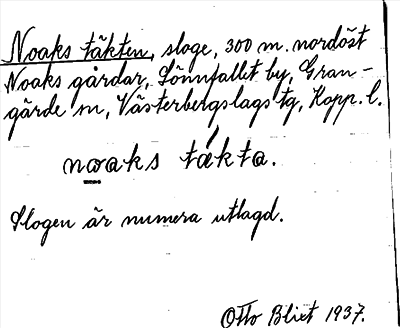 Noaks täkten, sloge, 300 m. nordöst
Noaks gårdar, Sönnfallet by, Gran-
gärde sn, Västerbergslags tg, Kopp. l.
noaks täkta.
Slogen är numera utlagd.
Otto Blixt 1937.